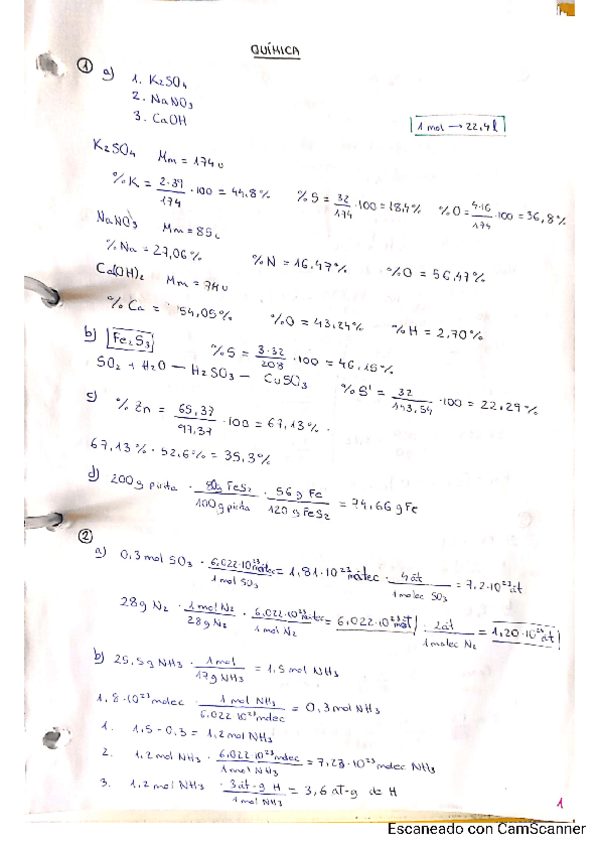 QUÍMICA
① a) 1. K₂SO₄
2. NaNO₃
3. CaOH
1 mol → 22,4 l
K₂SO₄ Mm = 174 u
%K = 2·39/174 · 100 = 44,8% %S = 32/174 · 100 = 18,4% %O = 4·16/174 · 100 = 36,8%
NaNO₃ Mm = 85u
%Na = 27,06% %N = 16,47% %O = 56,47%
Ca(OH)₂ Mm = 74u
%Ca = 54,05% %O = 43,24% %H = 2,70%
b) Fe₂S₃ %S = 3·32/208 · 100 = 46,15%
SO₂ + H₂O — H₂SO₃ — CuSO₃ %S = 32/143,54 · 100 = 22,29%
c) %Zn = 65,37/97,37 · 100 = 67,13%
67,13% · 52,6% = 35,3%
d) 200g pirita · 80g FeS₂/100g pirita · 56g Fe/120g FeS₂ = 74,66g Fe
②
a) 0,3 mol SO₃ · 6,022·10²³ molec/1 mol SO₃ = 1,81·10²³ molec · 4 át/1 molec SO₃ = 7,2·10²³ át
28g N₂ · 1 mol N₂/28g N₂ · 6,022·10²³ molec/1 mol N₂ = 6,022·10²³ · 2 át/1 molec N₂ = 1,20·10²⁴ át
b) 25,5g NH₃ · 1 mol/17g NH₃ = 1,5 mol NH₃
1,8·10²³ molec · 1 mol NH₃/6,022·10²³ molec = 0,3 mol NH₃
1. 1,5 - 0,3 = 1,2 mol NH₃
2. 1,2 mol NH₃ · 6,022·10²³ molec/1 mol NH₃ = 7,23·10²³ molec NH₃
3. 1,2 mol NH₃ · 3 át-g H/1 mol NH₃ = 3,6 át-g de H
1
Escaneado con CamScanner